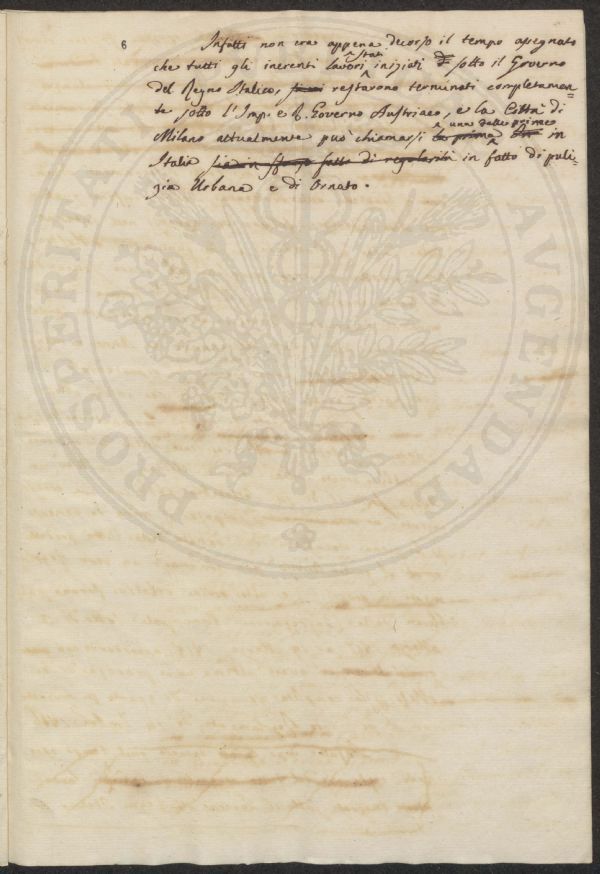 6
Infatti non era appena decorso il tempo assegnato
che tutti gli inerenti lavori stati iniziati sotto il Governo
del Regno Italico, restarono terminati completamen=
te sotto l'Imp. e R. Governo Austriaco, e la Città di
Milano attualmente può chiamarsi la prima una delle prime in
Italia fatto di regolarità in fatto di puli=
zia Urbana e di Ornato.
PROSPERITATI AVGENDAE